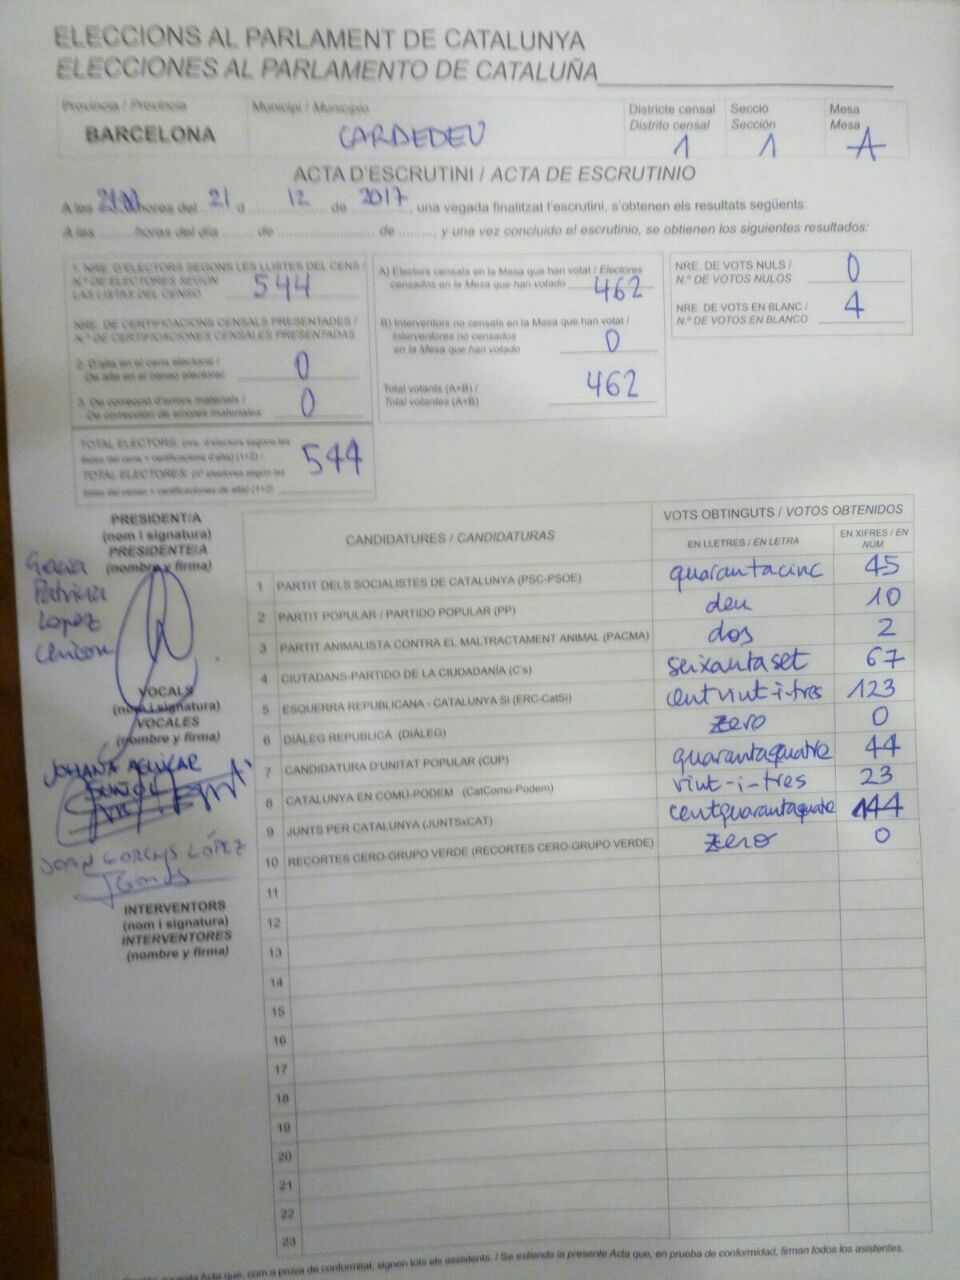 ELECCIONS AL PARLAMENT DE CATALUNYA
ELECCIONES AL PARLAMENTO DE CATALUÑA
Província / Provincia
BARCELONA
Municipi / Municipio
CARDEDEU
Districte censal
Distrito censal
1
Secció
Sección
1
Mesa
Mesa
A
ACTA D'ESCRUTINI / ACTA DE ESCRUTINIO
A les 21:00 hores del 21 d 12 de 2017, una vegada finalitzat l'escrutini, s'obtenen els resultats següents:
A las ........ horas del día ........ de ........ de ........, y una vez concluido el escrutinio, se obtienen los siguientes resultados:
1. NRE. D'ELECTORS SEGONS LES LLISTES DEL CENS /
N.º DE ELECTORES SEGÚN
LAS LISTAS DEL CENSO 544
NRE. DE CERTIFICACIONS CENSALS PRESENTADES /
N.º DE CERTIFICACIONES CENSALES PRESENTADAS
2. D'alta en el cens electoral /
De alta en el censo electoral: 0
3. De correcció d'errors materials /
De corrección de errores materiales: 0
TOTAL ELECTORS: (nre. d'electors segons les
llistes del cens + certificacions d'alta) (1+2) /
TOTAL ELECTORES: (nº electores según las
listas del censo + certificaciones de alta) (1+2) 544
A) Electors censals en la Mesa que han votat / Electores
censados en la Mesa que han votado 462
B) Interventors no censals en la Mesa que han votat /
Interventores no censados
en la Mesa que han votado 0
Total votants (A+B) /
Total votantes (A+B) 462
NRE. DE VOTS NULS /
N.º DE VOTOS NULOS 0
NRE. DE VOTS EN BLANC /
N.º DE VOTOS EN BLANCO 4
PRESIDENT/A
(nom i signatura)
PRESIDENTE/A
(nombre y firma)
Patricia
Lopez
VOCALS
(nom i signatura)
VOCALES
(nombre y firma)
JOHANA AGUILAR
JOAN GORCHS LÓPEZ
INTERVENTORS
(nom i signatura)
INTERVENTORES
(nombre y firma)
CANDIDATURES / CANDIDATURAS
VOTS OBTINGUTS / VOTOS OBTENIDOS
EN LLETRES / EN LETRA
EN XIFRES / EN NÚM.
1 PARTIT DELS SOCIALISTES DE CATALUNYA (PSC-PSOE) quarantacinc 45
2 PARTIT POPULAR / PARTIDO POPULAR (PP) deu 10
3 PARTIT ANIMALISTA CONTRA EL MALTRACTAMENT ANIMAL (PACMA) dos 2
4 CIUTADANS-PARTIDO DE LA CIUDADANÍA (C's) seixantaset 67
5 ESQUERRA REPUBLICANA - CATALUNYA SI (ERC-CatSí) centvint-i-tres 123
6 DIÀLEG REPUBLICÀ (DIÀLEG) zero 0
7 CANDIDATURA D'UNITAT POPULAR (CUP) quarantaquatre 44
8 CATALUNYA EN COMÚ-PODEM (CatComú-Podem) vint-i-tres 23
9 JUNTS PER CATALUNYA (JUNTSxCAT) centquarantaquatre 144
10 RECORTES CERO-GRUPO VERDE (RECORTES CERO-GRUPO VERDE) zero 0
11
12
13
14
15
16
17
18
19
20
21
22
23
aquesta Acta que, com a prova de conformitat, signen tots els assistents. / Se extiende la presente Acta que, en prueba de conformidad, firman todos los asistentes.